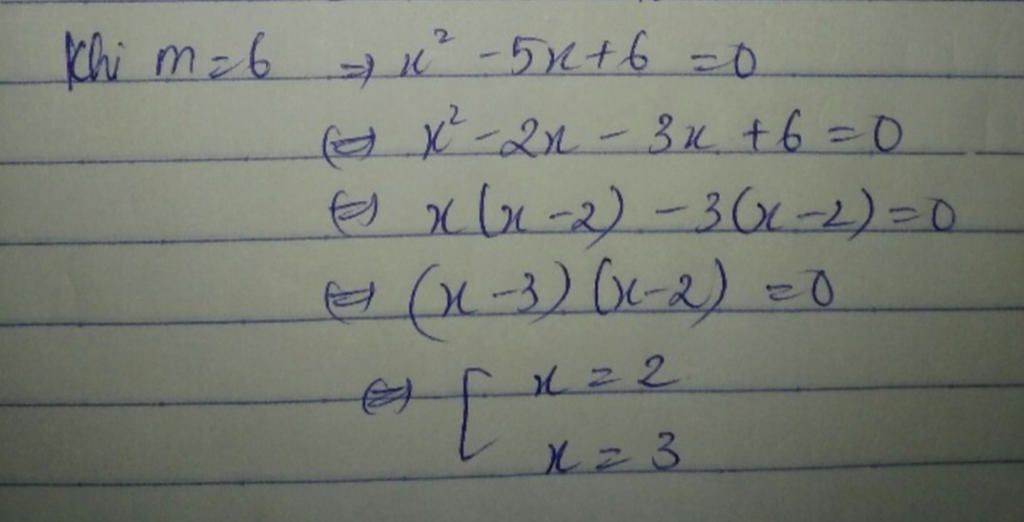 Khi m=6 => x² -5x+6 =0
<=> x² -2x - 3x +6 =0
<=> x(x-2) -3(x-2)=0
<=> (x-3)(x-2) =0
<=> [ x=2
x=3